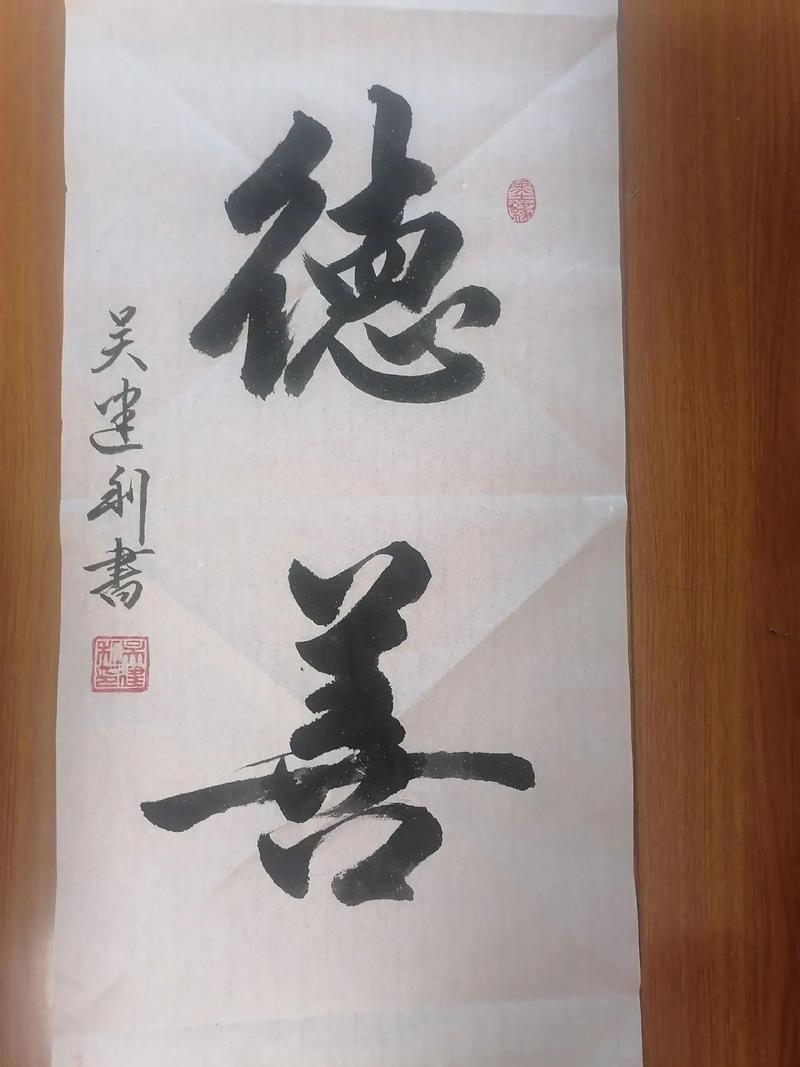 德善
吴建利書
吴建利印